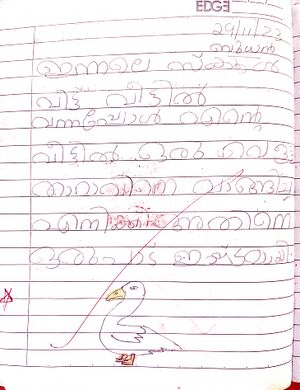 EDGE
29/11/23
ബുധൻ
ഇന്നലെ സ്കൂൾ
വിട്ട് വീട്ടിൽ
വന്നപ്പോൾ എൻ്റെ
വീട്ടിൽ ഒരു വെള്ള
താറാവിനെ വാങ്ങിച്ചു
എനിക്ക് അതിനെ
ഒരുപാട് ഇഷ്ടമായി.